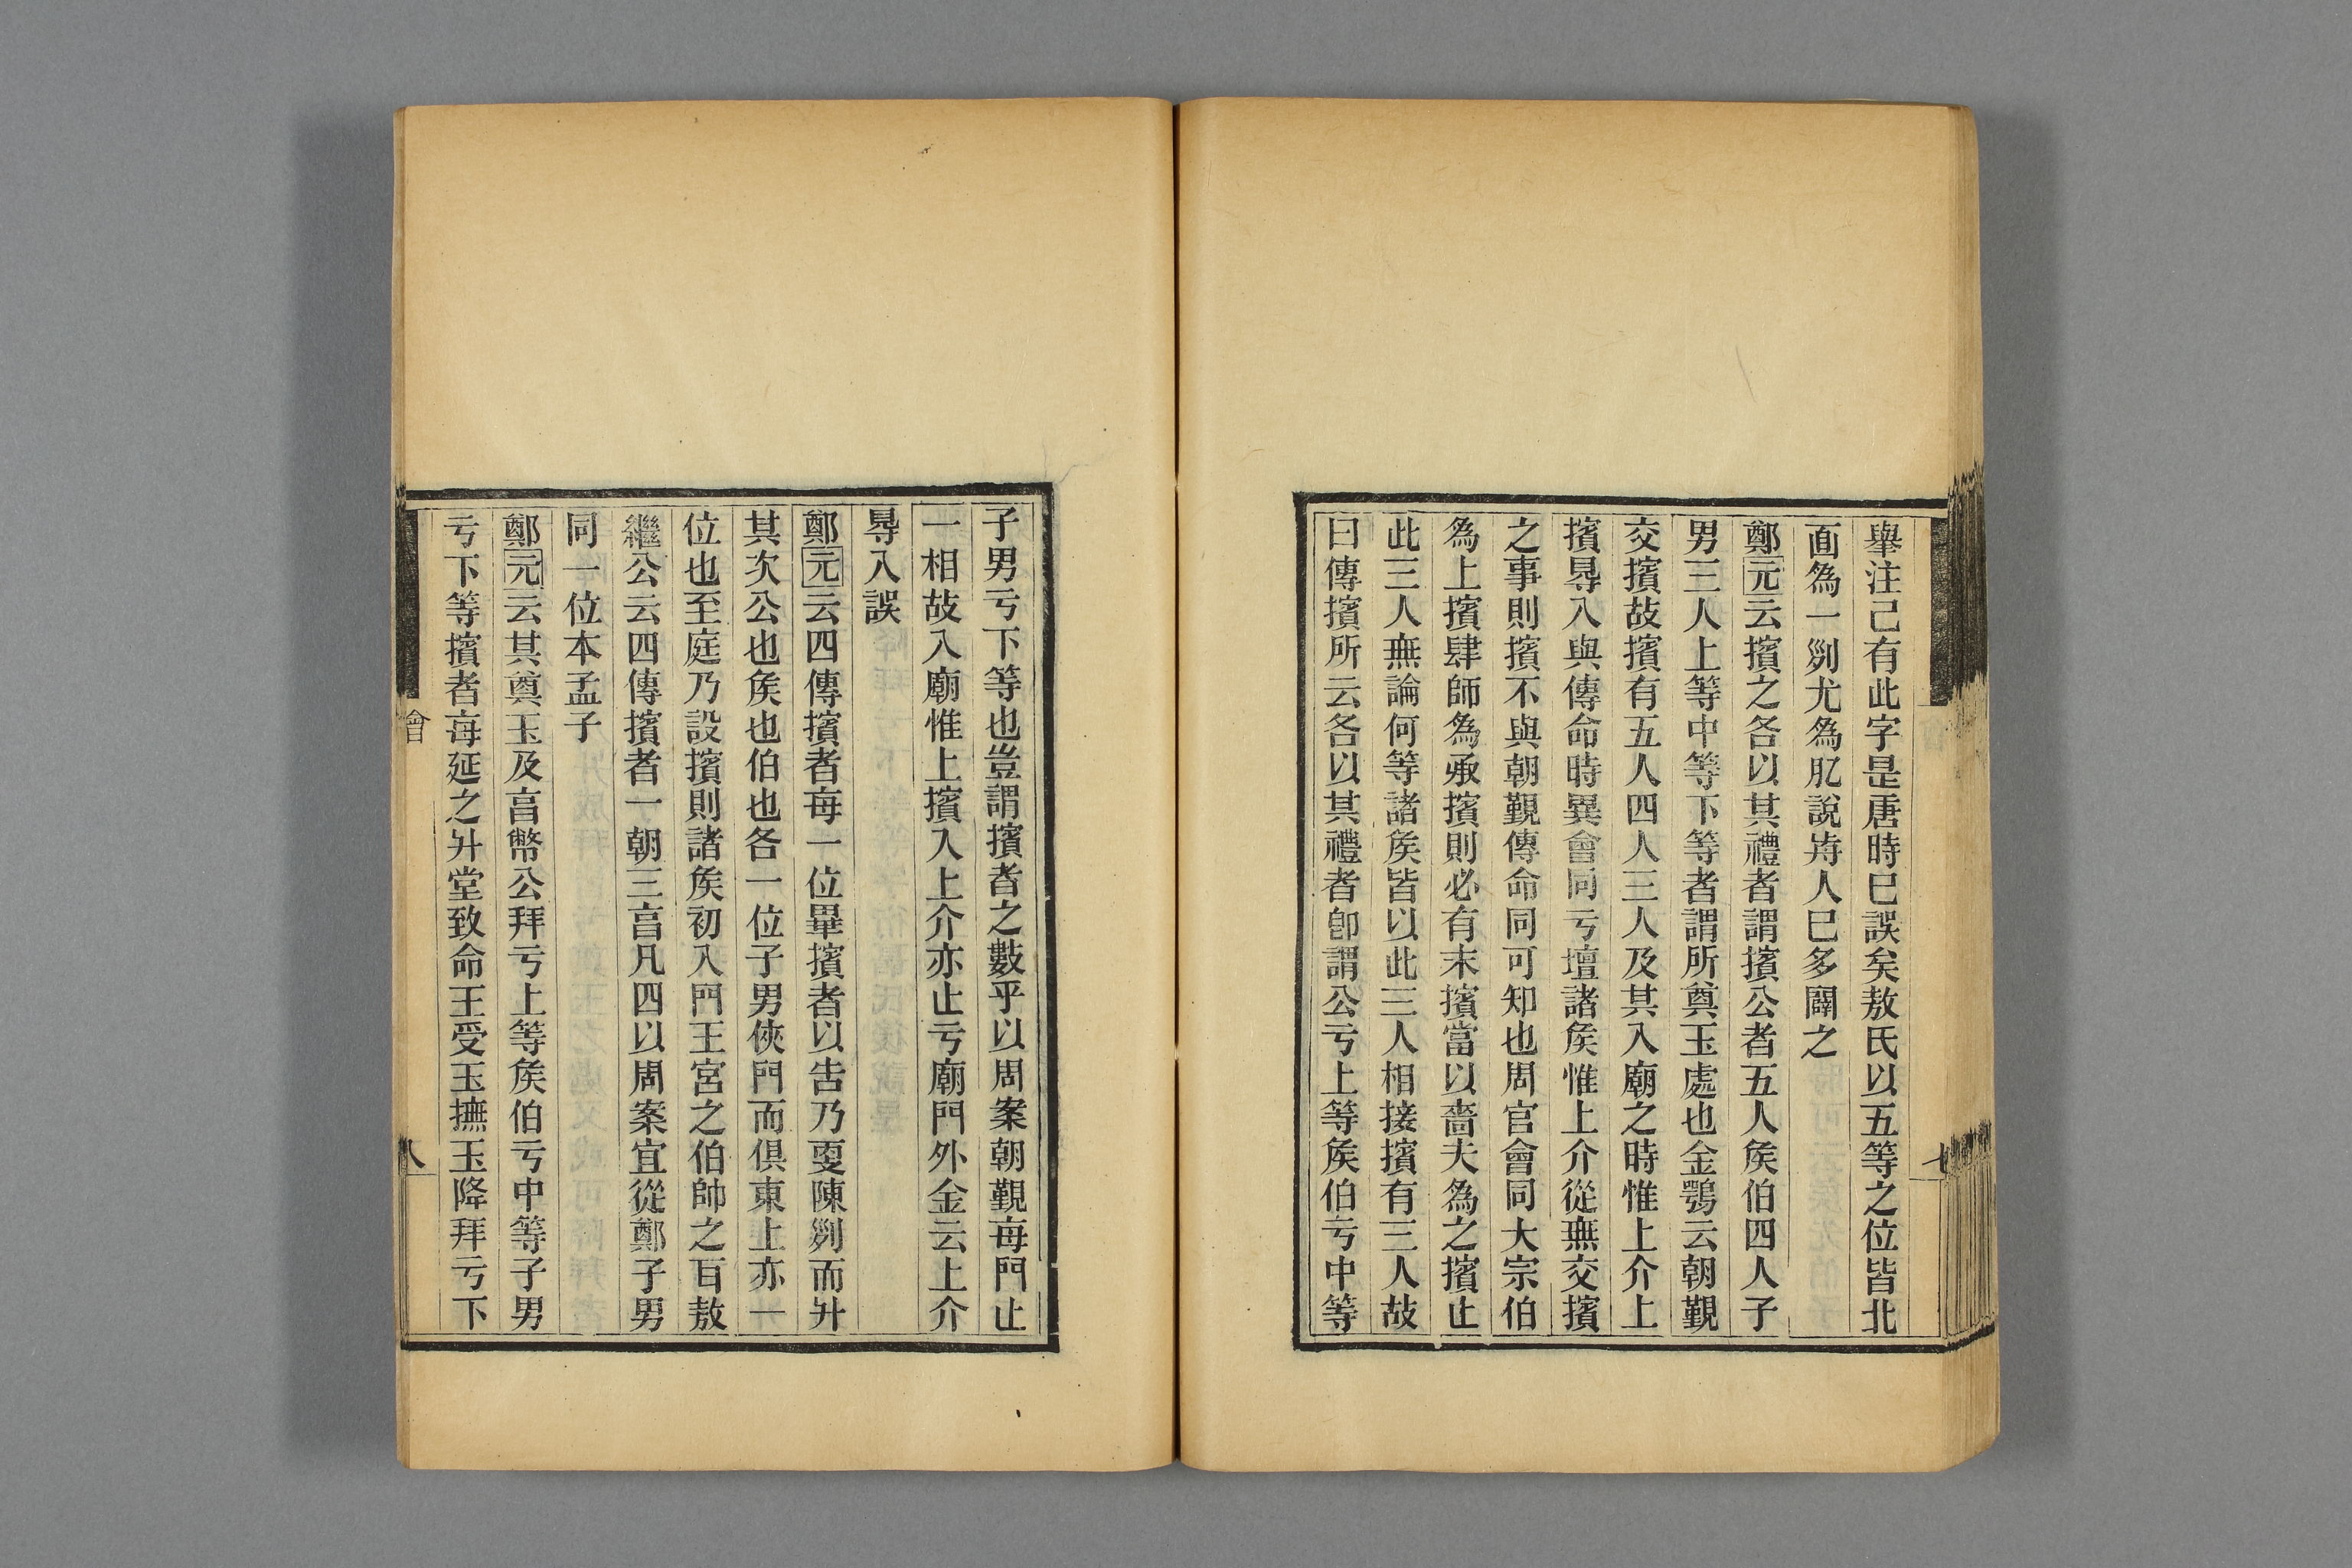 舉注己有此字是唐時巳誤矣敖氏以五等之位皆北
面為一列尤為肊說歬人巳多闢之
鄭元云擯之各以其禮者謂擯公者五人矦伯四人子
男三人上等中等下等者謂所奠玉處也金鶚云朝覲
交擯故擯有五人四人三人及其入廟之時惟上介上
擯㝵入與傳命時異會同亏壇諸矦惟上介從無交擯
之事則擯不與朝覲傳命同可知也周官會同大宗伯
為上擯肆師為承擯則必有末擯當以嗇夫為之擯止
此三人無論何等諸矦皆以此三人相接擯有三人故
曰傳擯所云各以其禮者卽謂公亏上等矦伯亏中等
七
子男亏下等也豈謂擯者之數乎以周案朝覲每門止
一相故入廟惟上擯入上介亦止亏廟門外金云上介
㝵入誤
鄭元云四傳擯者每一位畢擯者以告乃更陳列而升
其次公也矦也伯也各一位子男俠門而俱東上亦一
位也至庭乃設擯則諸矦初入門王宮之伯帥之百敖
繼公云四傳擯者一朝三亯凡四以周案宜從鄭子男
同一位本孟子
鄭元云其奠玉及亯幣公拜亏上等矦伯亏中等子男
亏下等擯者每延之升堂致命王受玉撫玉降拜亏下
會
八